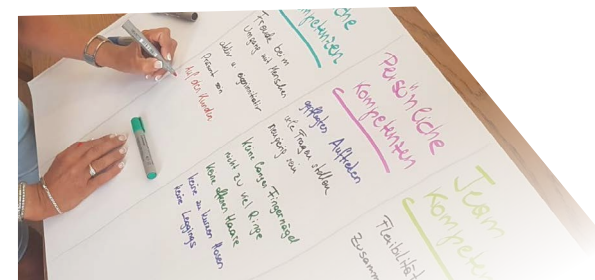 che
mpetenzen
Freude beim
Umgang mit Menschen
Präsent sein
Auf den Kunden
Persönliche
Kompetenzen
gepflegtes Auftreten
viele Fragen stellen
neugierig sein
Keine langen Fingernägel
nicht zu viel Ringe
Keine offenen Haare
keine zu kurzen Hosen
keine Leggings
Team
Kompete
Flexibilität
Zusamm